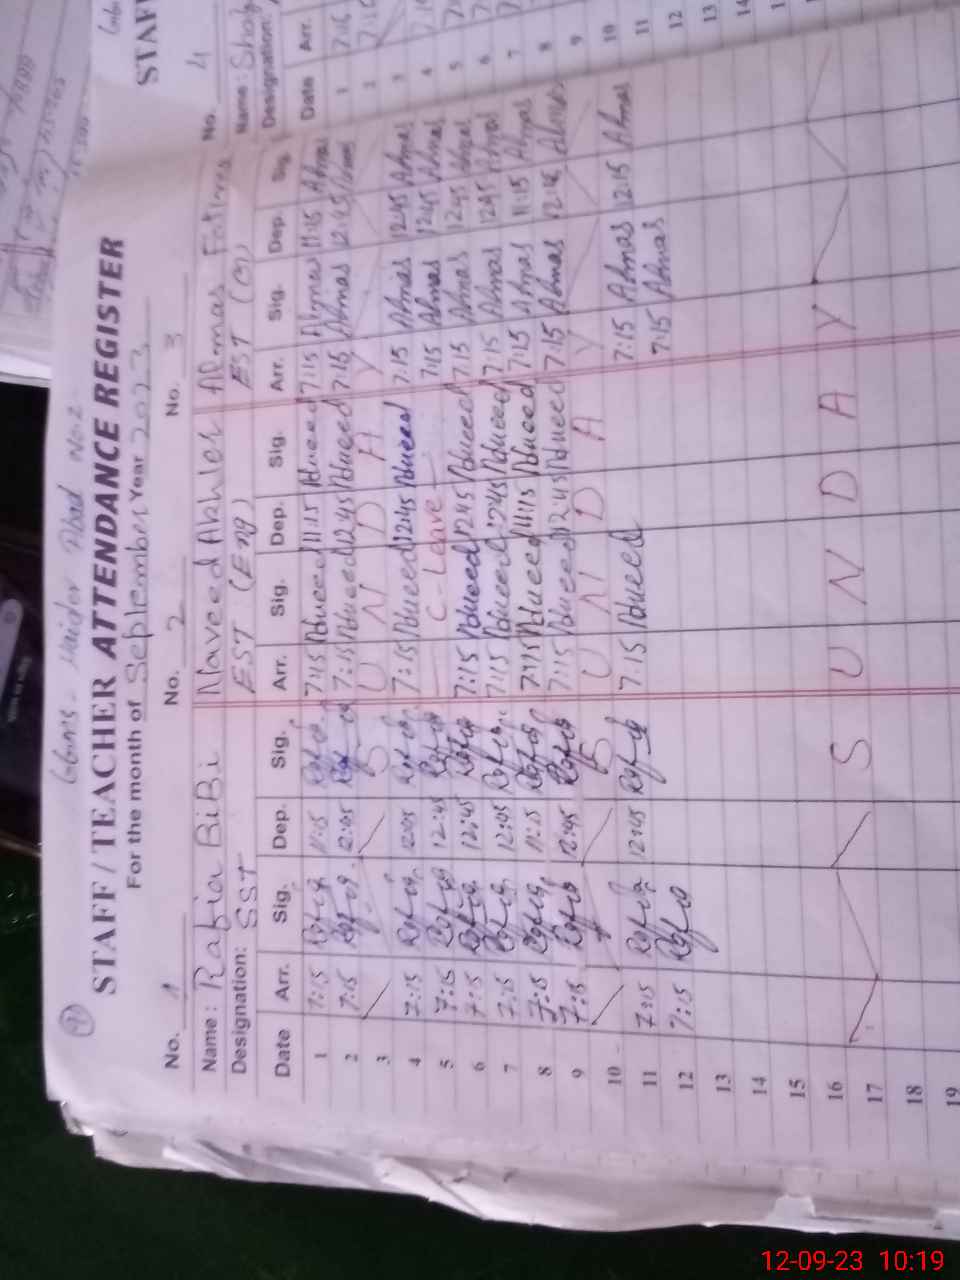 STAFF / TEACHER ATTENDANCE REGISTER
For the month of September Year 2023
No. 1 No. 2 No. 3 No. 4
Name: Rafia BiBi Naveed Akhter Almas Fatima Name: Shag
Designation: SST EST (Eng) EST (M) Designation:
Date Arr. Sig. Dep. Sig. Arr. Sig. Dep. Sig. Arr. Sig. Dep. Sig. Date Arr.
1 7:15 Rafia 11:15 Rafia 7:15 Naveed 11:15 Naveed 7:15 Almas 11:15 Almas 1 7:15
2 7:15 Rafia 12:45 Rafia 7:15 Naveed 12:45 Naveed 7:15 Almas 12:45 Almas 2 7:15
3 S U N D A Y 3
4 7:15 Rafia 12:45 Rafia 7:15 Naveed 12:45 Naveed 7:15 Almas 12:45 Almas 4
5 7:15 Rafia 12:45 Rafia C-Leave 7:15 Almas 12:45 Almas 5
6 7:15 Rafia 12:45 Rafia 7:15 Naveed 12:45 Naveed 7:15 Almas 12:45 Almas 6
7 7:15 Rafia 12:45 Rafia 7:15 Naveed 12:45 Naveed 7:15 Almas 12:45 Almas 7
8 7:15 Rafia 11:15 Rafia 7:15 Naveed 11:15 Naveed 7:15 Almas 11:15 Almas 8
9 7:15 Rafia 12:45 Rafia 7:15 Naveed 12:45 Naveed 7:15 Almas 12:45 Almas 9
10 S U N D A Y 10
11 7:15 Rafia 12:45 Rafia 7:15 Naveed 7:15 Almas 12:15 Almas 11
12 7:15 Rafia 7:15 Almas 12
13 13
14 14
15
16
17 S U N D A Y
18
19
12-09-23 10:19